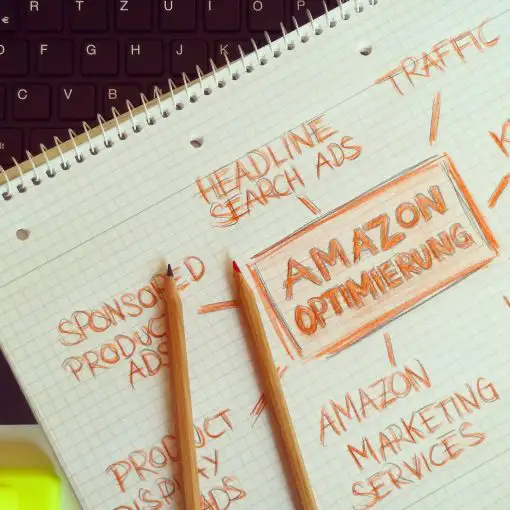 R T Z U I O P
€
D F G H J K
C V B
TRAFFIC
HEADLINE
SEARCH ADS
K
AMAZON
OPTIMIERUNG
SPONSORED
PRODUCT
ADS
AMAZON
MARKETING
SERVICES
PRODUCT
DISPLAY
ADS